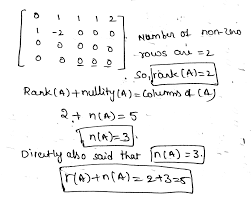 0 1 1 1 2
1 -2 0 0 0
0 0 0 0 0
0 0 0 0 0
Number of non-zero
rows are = 2
So, rank(A)=2
Rank(A)+nullity(A)= Columns of (A)
2 + n(A) = 5
n(A)=3
Directly also said that n(A)=3.
r(A)+n(A)=2+3=5